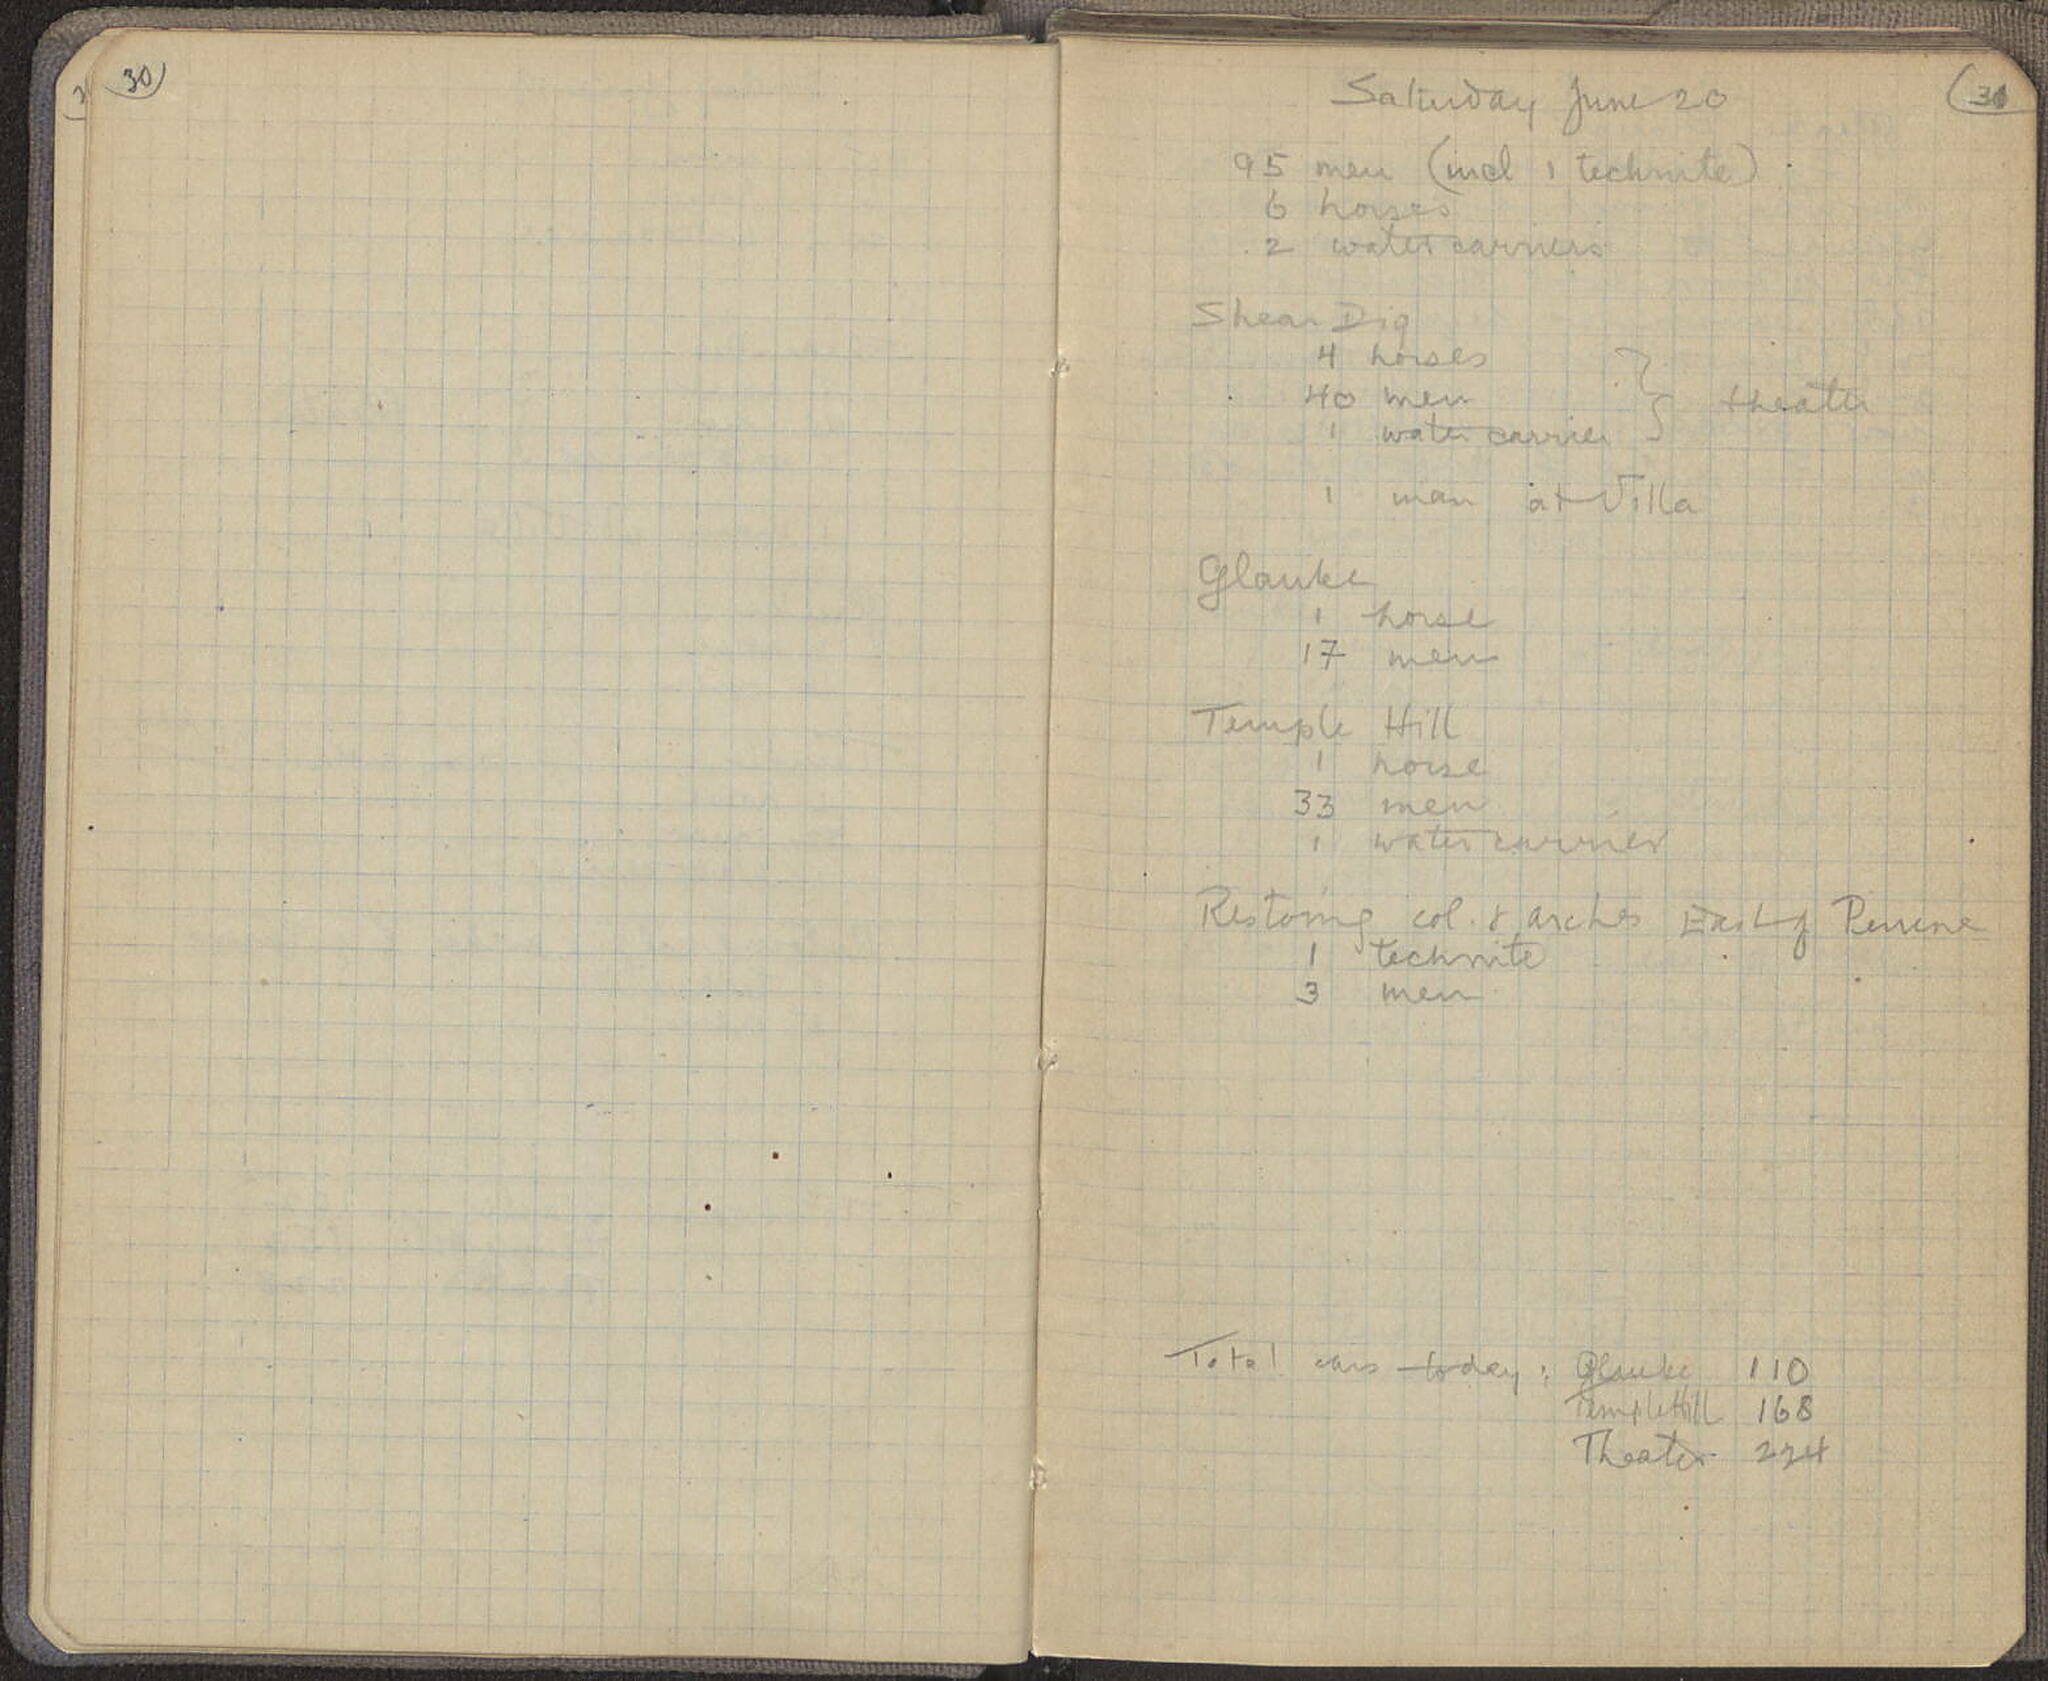 30
Saturday June 20
31
95 men (incl 1 technite)
6 horses
2 water carriers
Shear Dig
4 horses
40 men
theater
1 water carrier
1 man at Villa
Glauke
1 horse
17 men
Temple Hill
1 horse
33 men
1 water carrier
Restoring col. & arches East of Peirene
1 technite
3 men
Total cars today: Glauke 110
Temple Hill 168
Theater 224